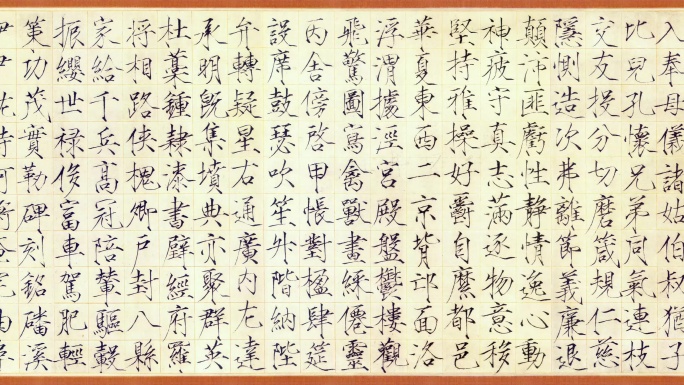 入奉母儀諸姑伯叔猶子
比兒孔懷兄弟同氣連枝
交友投分切磨箴規仁慈
隱惻造次弗離節義廉退
顛沛匪虧性靜情逸心動
神疲守真志滿逐物意移
堅持雅操好爵自縻都邑
華夏東西二京背邙面洛
浮渭據涇宮殿盤鬱樓觀
飛驚圖寫禽獸畫綵僊靈
丙舍傍啓甲帳對楹肆筵
設席鼓瑟吹笙升階納陛
弁轉疑星右通廣內左達
承明既集墳典亦聚群英
杜稾鍾隸漆書壁經府羅
將相路俠槐卿戶封八縣
家給千兵高冠陪輦驅轂
振纓世祿侈富車駕肥輕
策功茂實勒碑刻銘磻溪